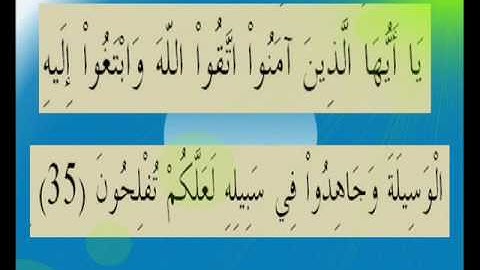 يَا أَيُّهَا الَّذِينَ آمَنُواْ اتَّقُواْ اللّهَ وَابْتَغُواْ إِلَيهِ
الْوَسِيلَةَ وَجَاهِدُواْ فِي سَبِيلِهِ لَعَلَّكُمْ تُفْلِحُونَ (35)